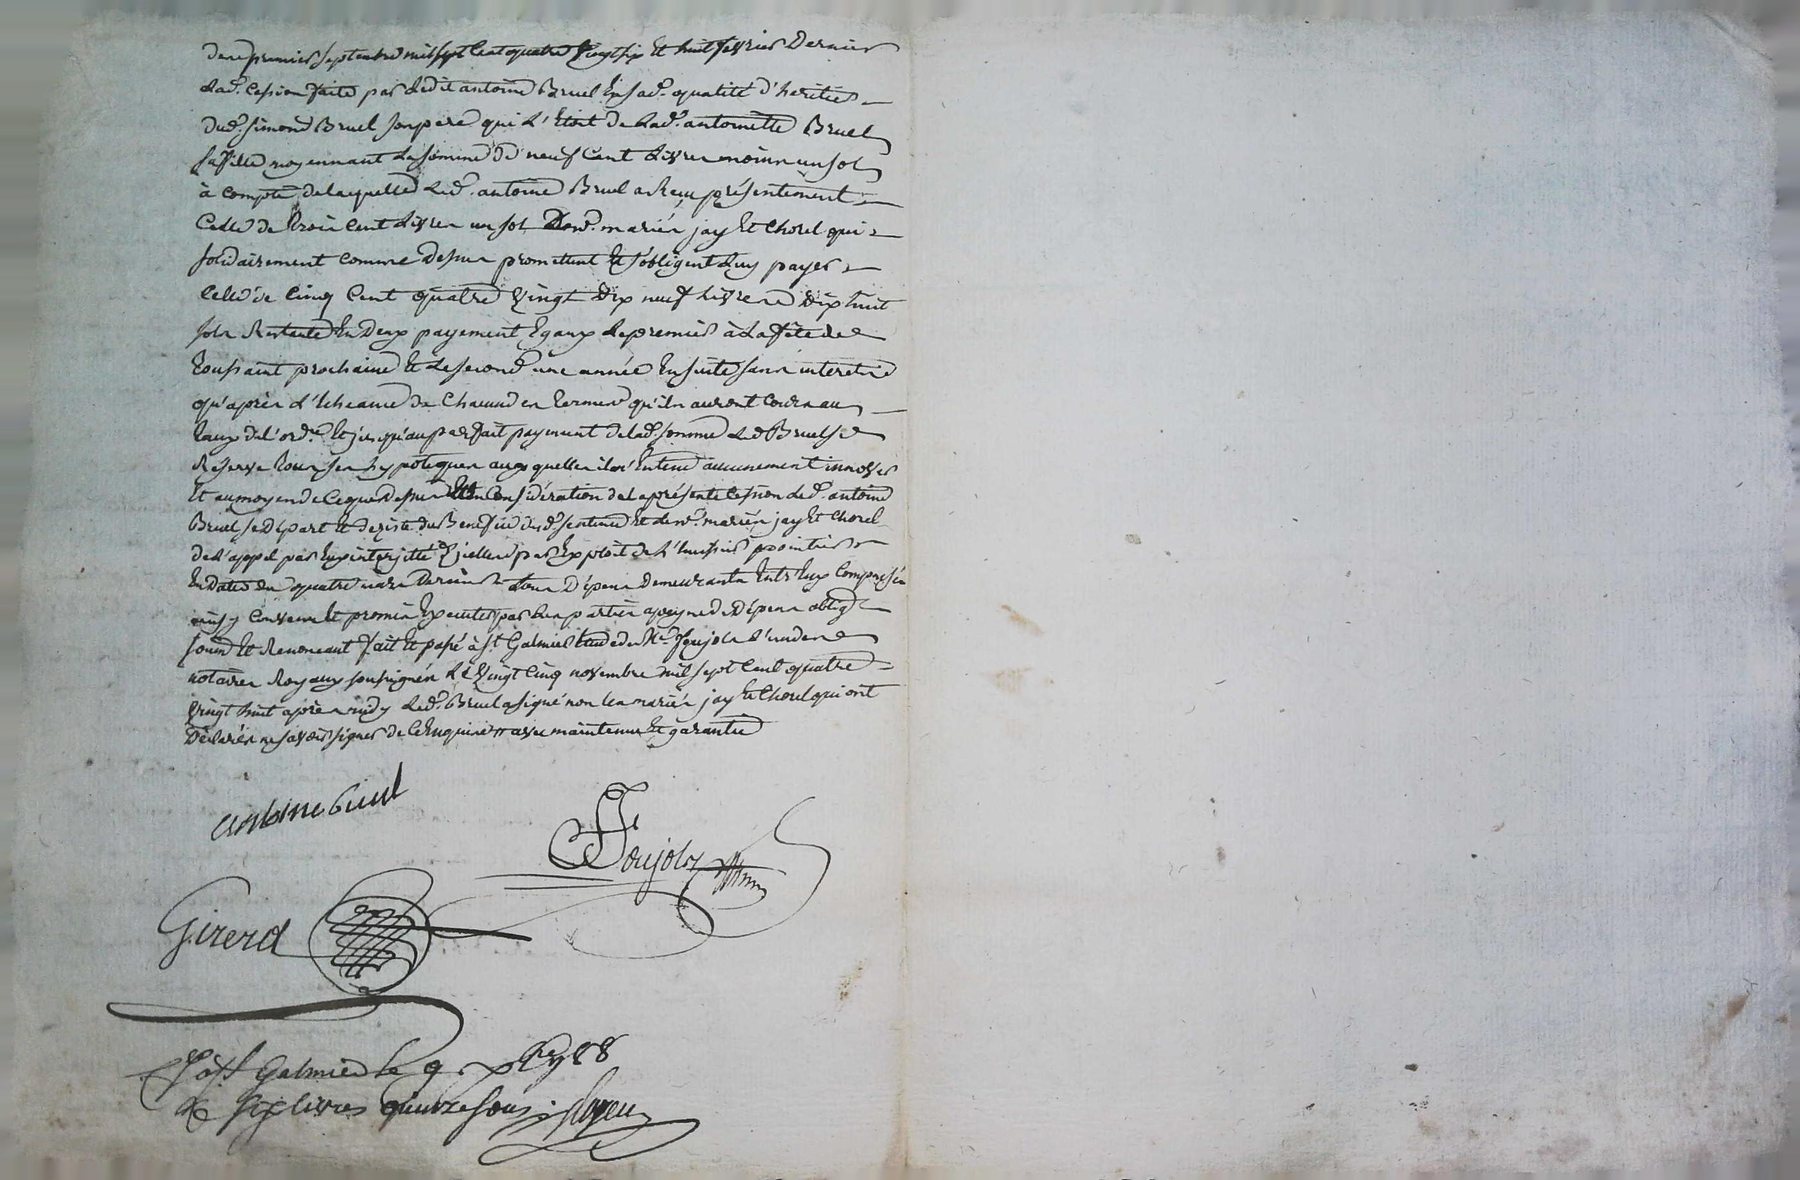 des premier septembre mil sept cent quatre vingt six et huit fevrier dernier
lad. cession faite par ledit antoine Bruel en sad. qualité d'heritier
dud. simond Bruel son pere qui l'etoit de lad. antoinette Bruel
sa fille moyennant la somme de neuf cent livres moins un sol
à compte de laquelle led. antoine Bruel a reçu présentement
celle de trois cent livres un sol desd. mariés jay et chorel qui
solidairement comme dessus promettent et s'obligent luy payer
celle de cinq cent quatre vingt dix neuf livres dix huit
sols restante en deux payement egaux le premier à la fête de
toussaint prochaine et le second une année ensuite sans interets
qu'après l'echeance de chacun des termes qu'ils auront cours au
taux de l'ord.ce et jusqu'au parfait payement de lad. somme led. Bruel se
reserve tous ses hypoteques auxquelles il n'entend aucunement innover
et au moyen de ce que dessus et en considération de la présente cession led. antoine
Bruel se départ et deziste du benefice desd. sentences et lesd. mariés jay et chorel
de l'appel par eux interjetté d'icelles par exploit de l'huissier pointier
en date du quatre mars dernier tous dépens demeurants entr'eux compensés
ainsy convenu et promis executer par les parties a peyne de dépens oblig.
soum. et renonceant fait et passé à st Galmier etude de Me. Poujols l'un des
notaires Royaux soussignés le vingt cinq novembre mil sept cent quatre
vingt huit après midy led. Bruel a signé non les mariés jay et chorel qui ont
déclarés ne savoir signer de ce enquis avec maintenue et garantie
antoine bruel
Poujols
Girerd
à st Galmier le 9 xbre 88
six livres quinze sous